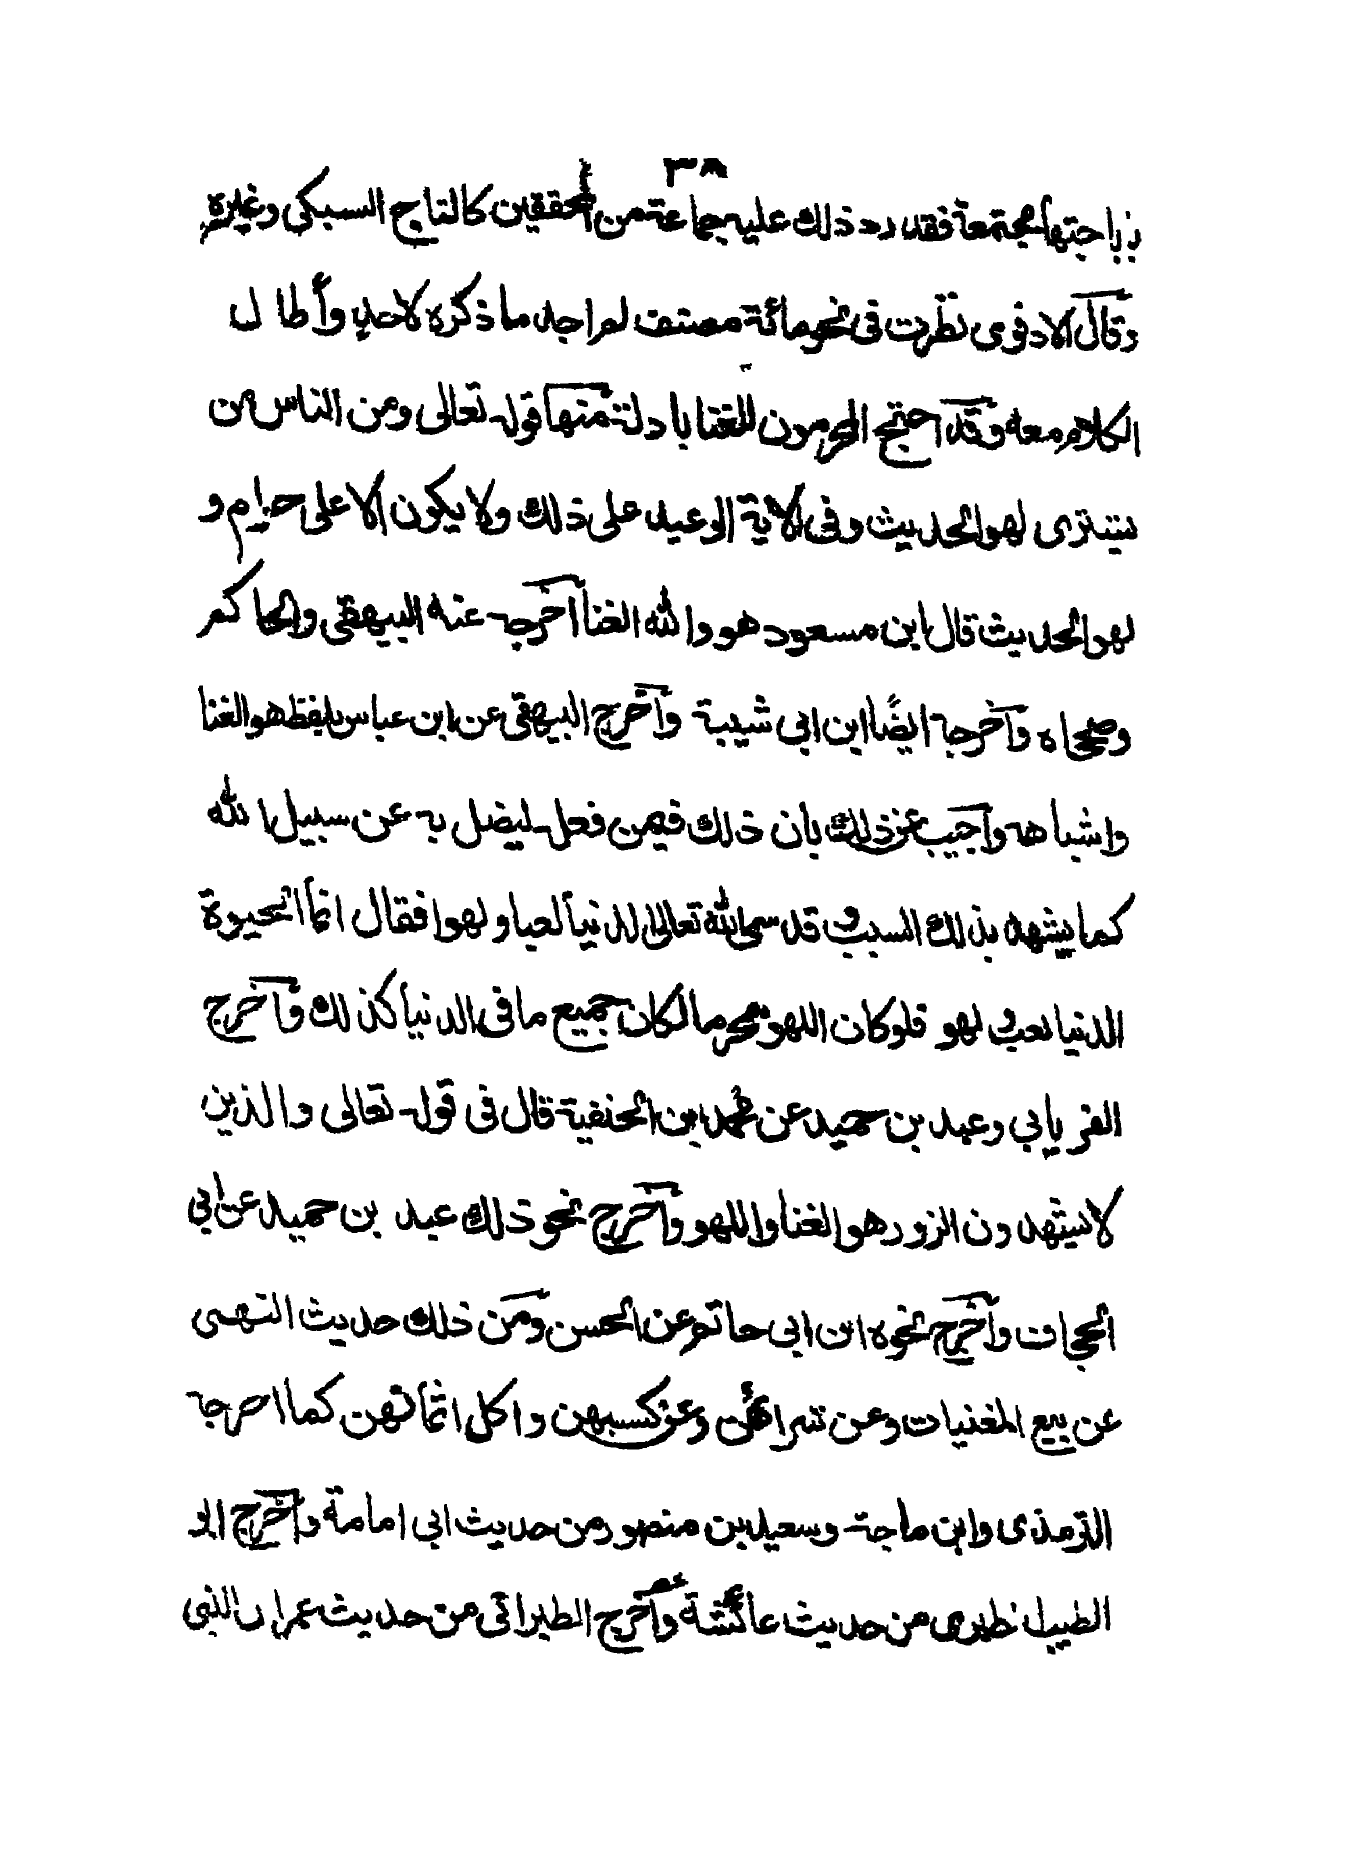 ٣٨
باباحتها مجتمعة فقد رد ذلك عليه جماعة من المحققين كالتاج السبكي وغيره
وقال الادفوى نظرت فى نحو مائة مصنف لم اجد ما ذكره لاحد وأطال
الكلام معه وقد احتج المحرمون للغنا بادلة منها قوله تعالى ومن الناس من
يشترى لهو الحديث وفى الاية الوعيد على ذلك ولا يكون الا على حرام و
لهو الحديث قال ابن مسعود هو والله الغنا أخرجه عنه البيهقى والحاكم
وصححاه وأخرجه ايضًا ابن ابى شيبة وأخرج البيهقى عن ابن عباس بلفظ هو الغنا
واشباهه وأجيب عن ذلك بان ذلك فيمن فعله ليضل به عن سبيل الله
كما يشهد بذلك السبب وقد سمى الله تعالى الدنيا لعبا ولهوا فقال انما الحيوة
الدنيا لعب و لهو فلو كان اللهو محرما لكان جميع ما فى الدنيا كذلك وأخرج
الفريابي وعبد بن حميد عن محمد بن الحنفية قال فى قوله تعالى والذين
لا يشهدون الزور هو الغنا واللهو وأخرج نحو ذلك عبد بن حميد عن ابي
الحجاف وأخرج نحوه ابن ابى حاتم عن الحسن ومن ذلك حديث النهى
عن بيع المغنيات وعن شرائهن وعن كسبهن واكل اثمانهن كما اخرجه
الترمذى وابن ماجة وسعيد بن منصور من حديث ابى امامة وأخرج ابو
الطيب طبرى من حديث عائشة وأخرج الطبرانى من حديث عمر ان النبى